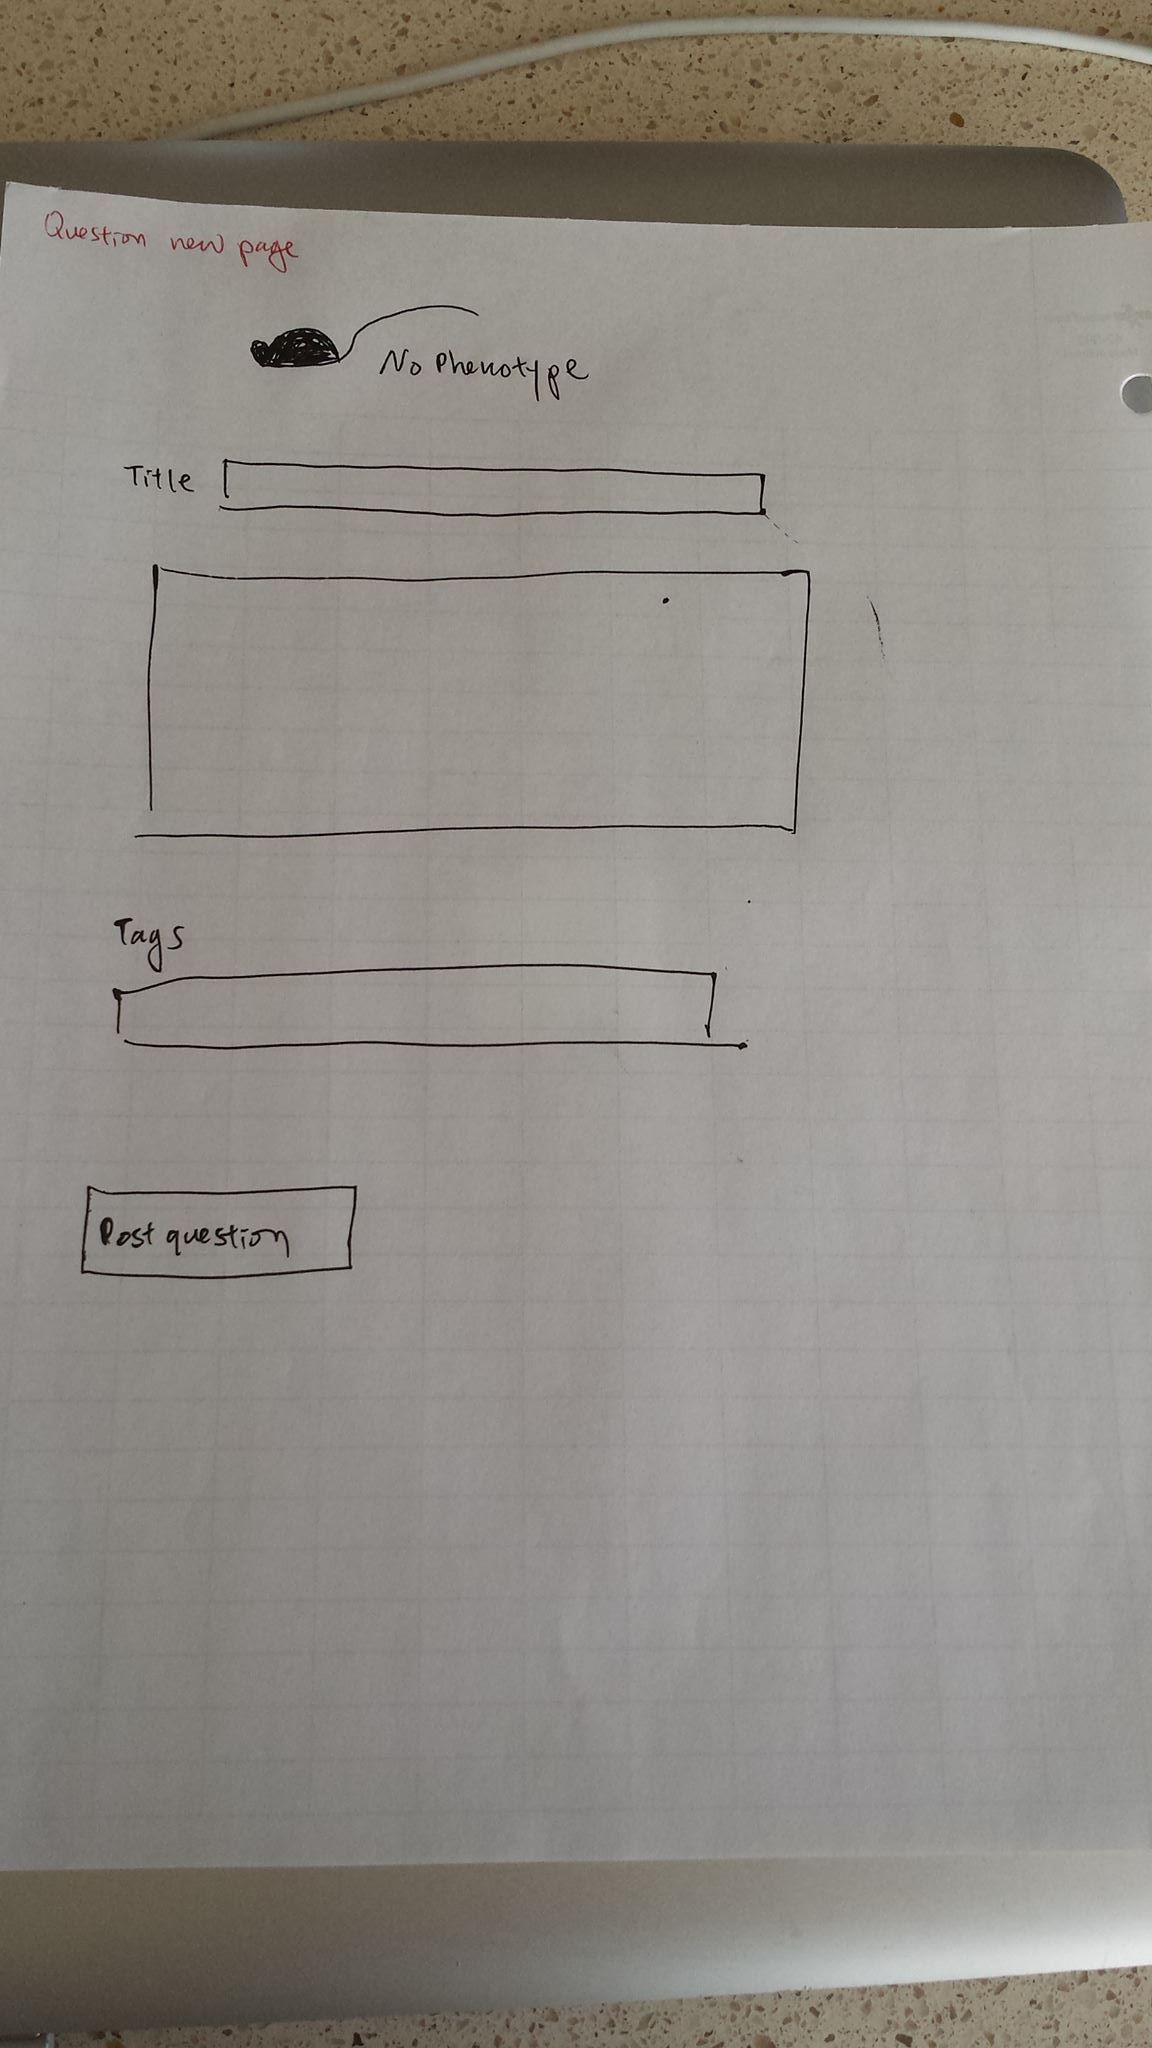 Question new page
No Phenotype
Title
Tags
Post question